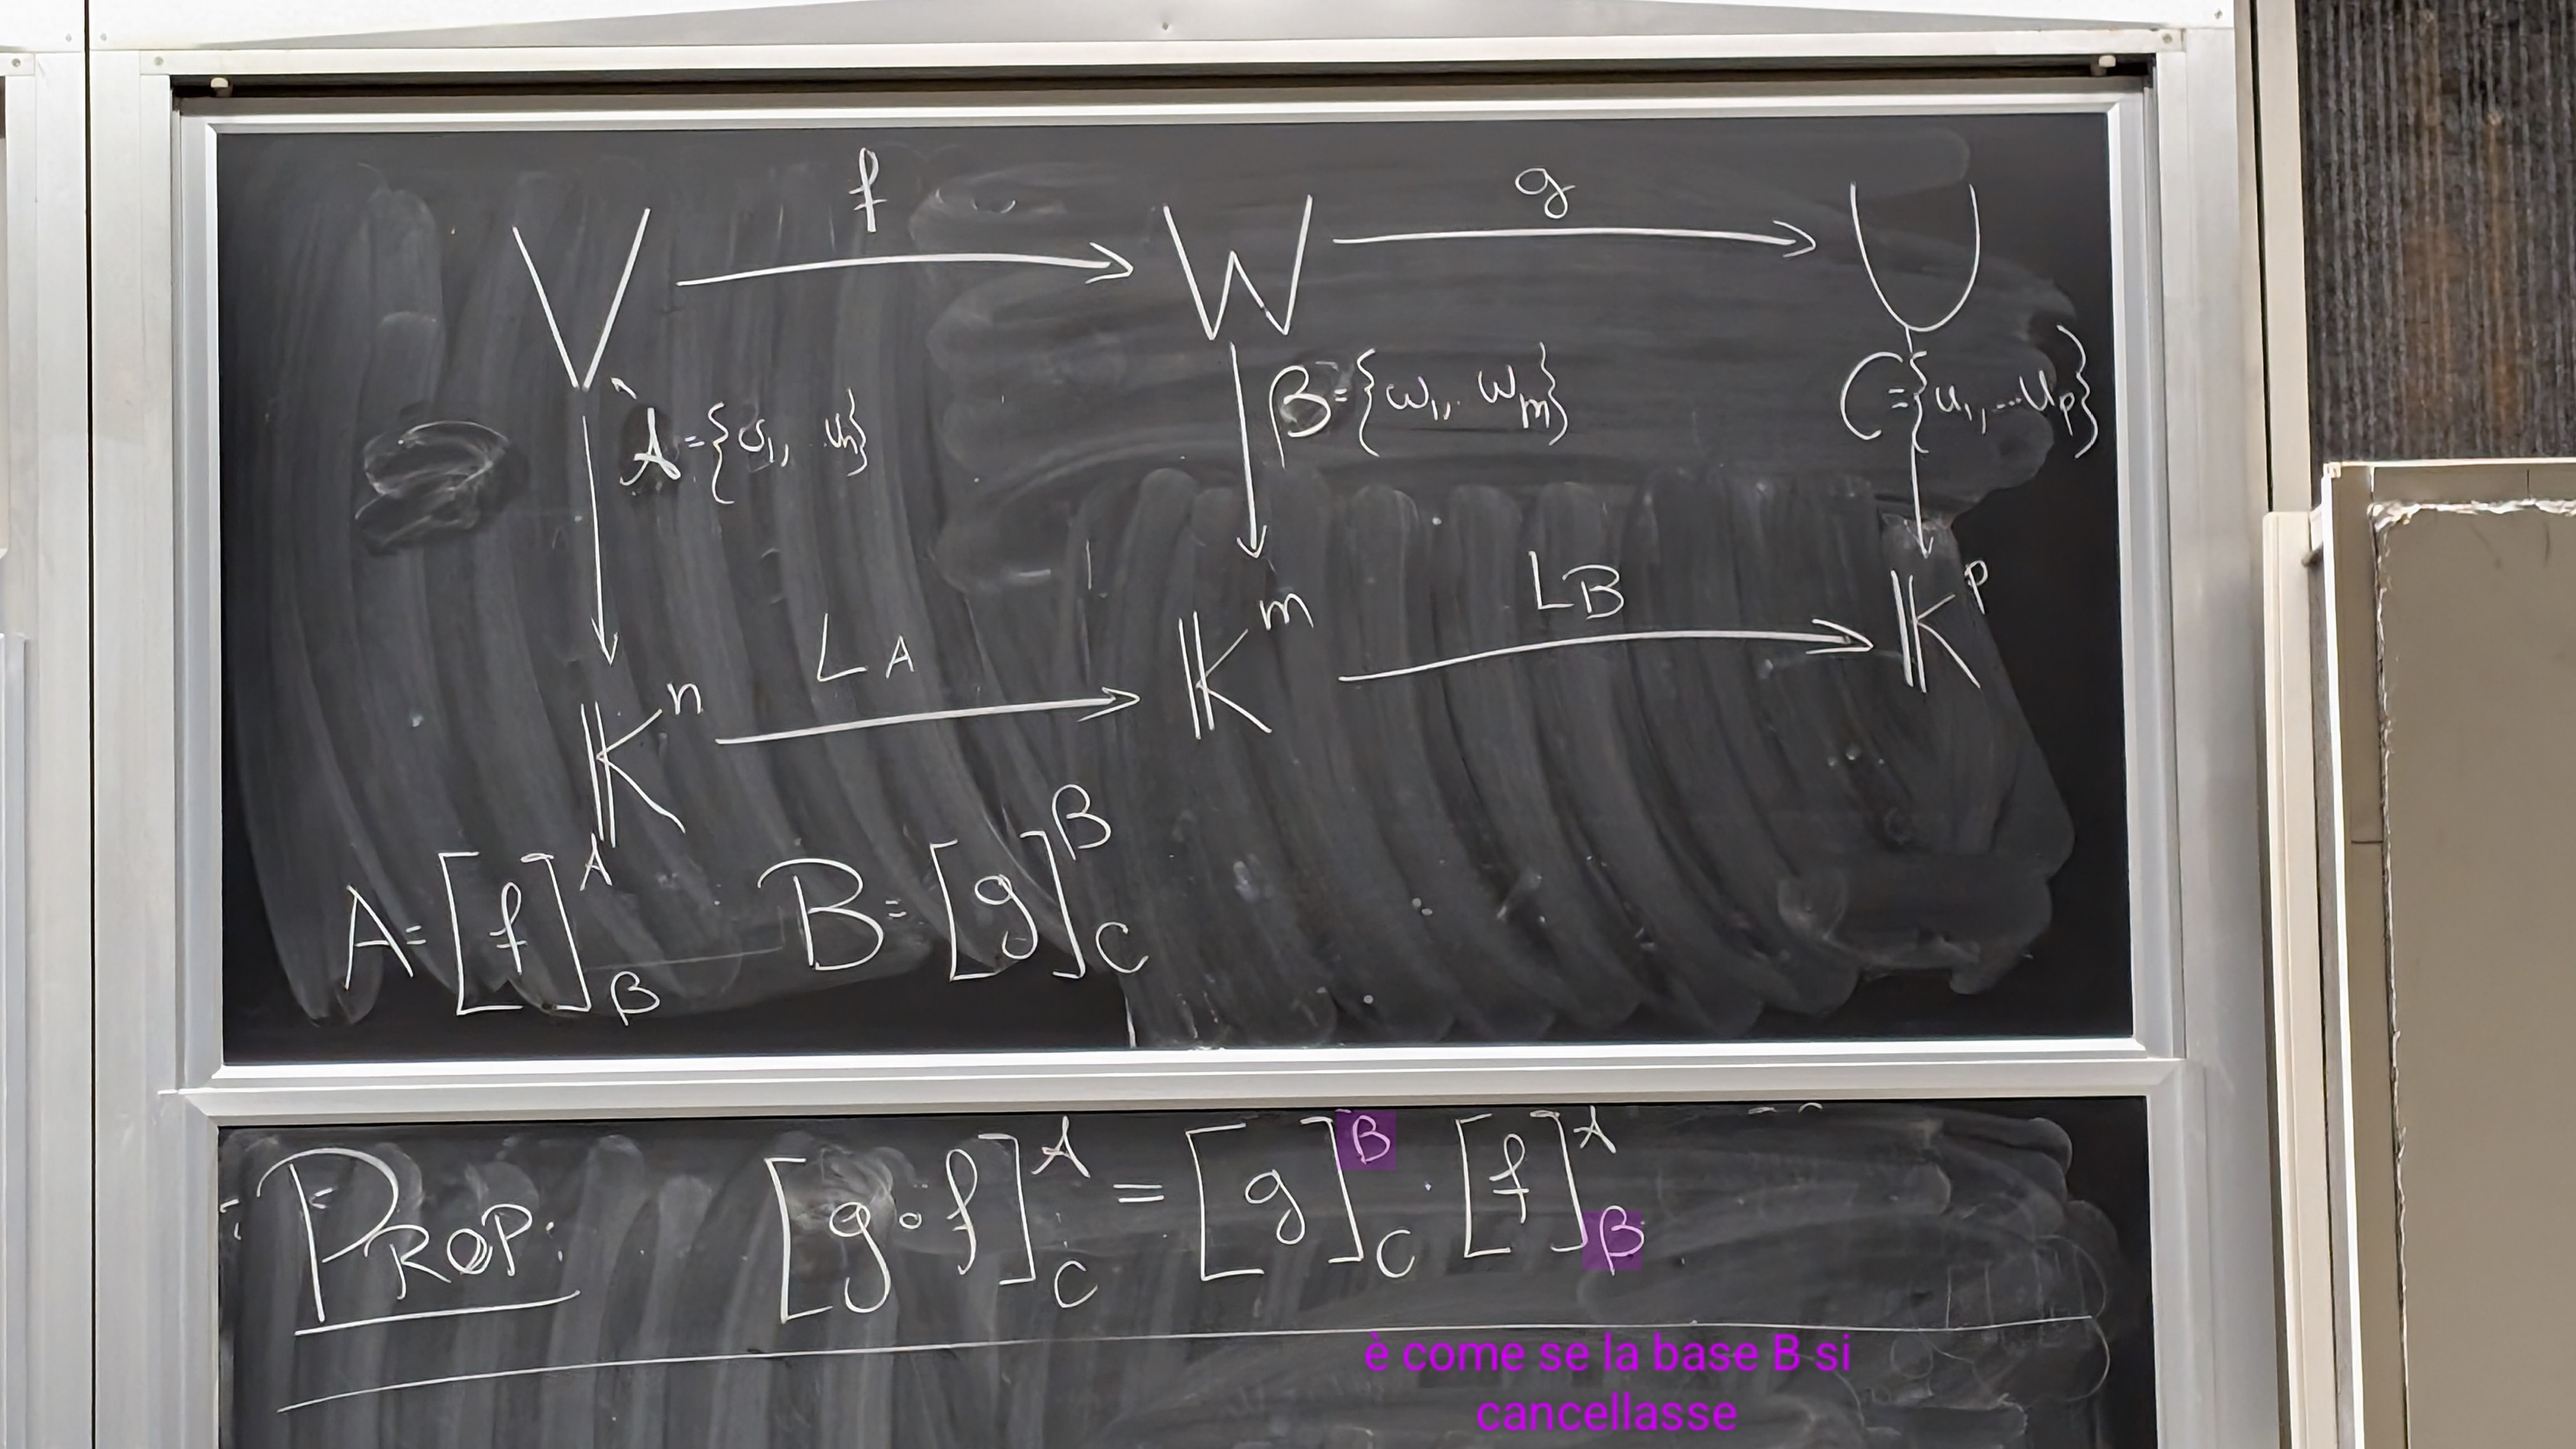 V f W g U
𝒜={v₁, vₙ} ℬ={w₁,.. wₘ} C={u₁,...uₚ}
𝕂ⁿ L_A 𝕂ᵐ L_B 𝕂ᵖ
A=[f]^𝒜_ℬ B=[g]^ℬ_C
PROP: [g∘f]^𝒜_C = [g]^ℬ_C · [f]^𝒜_ℬ
è come se la base B si
cancellasse